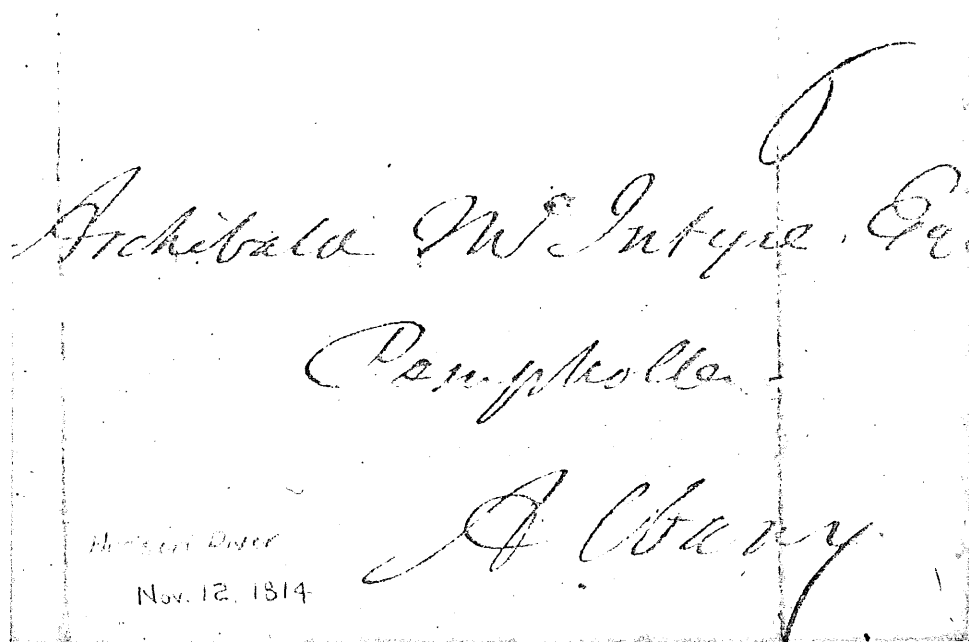 Archibald McIntyre Esq
Comptroller
Albany
Hudson River
Nov. 12, 1814